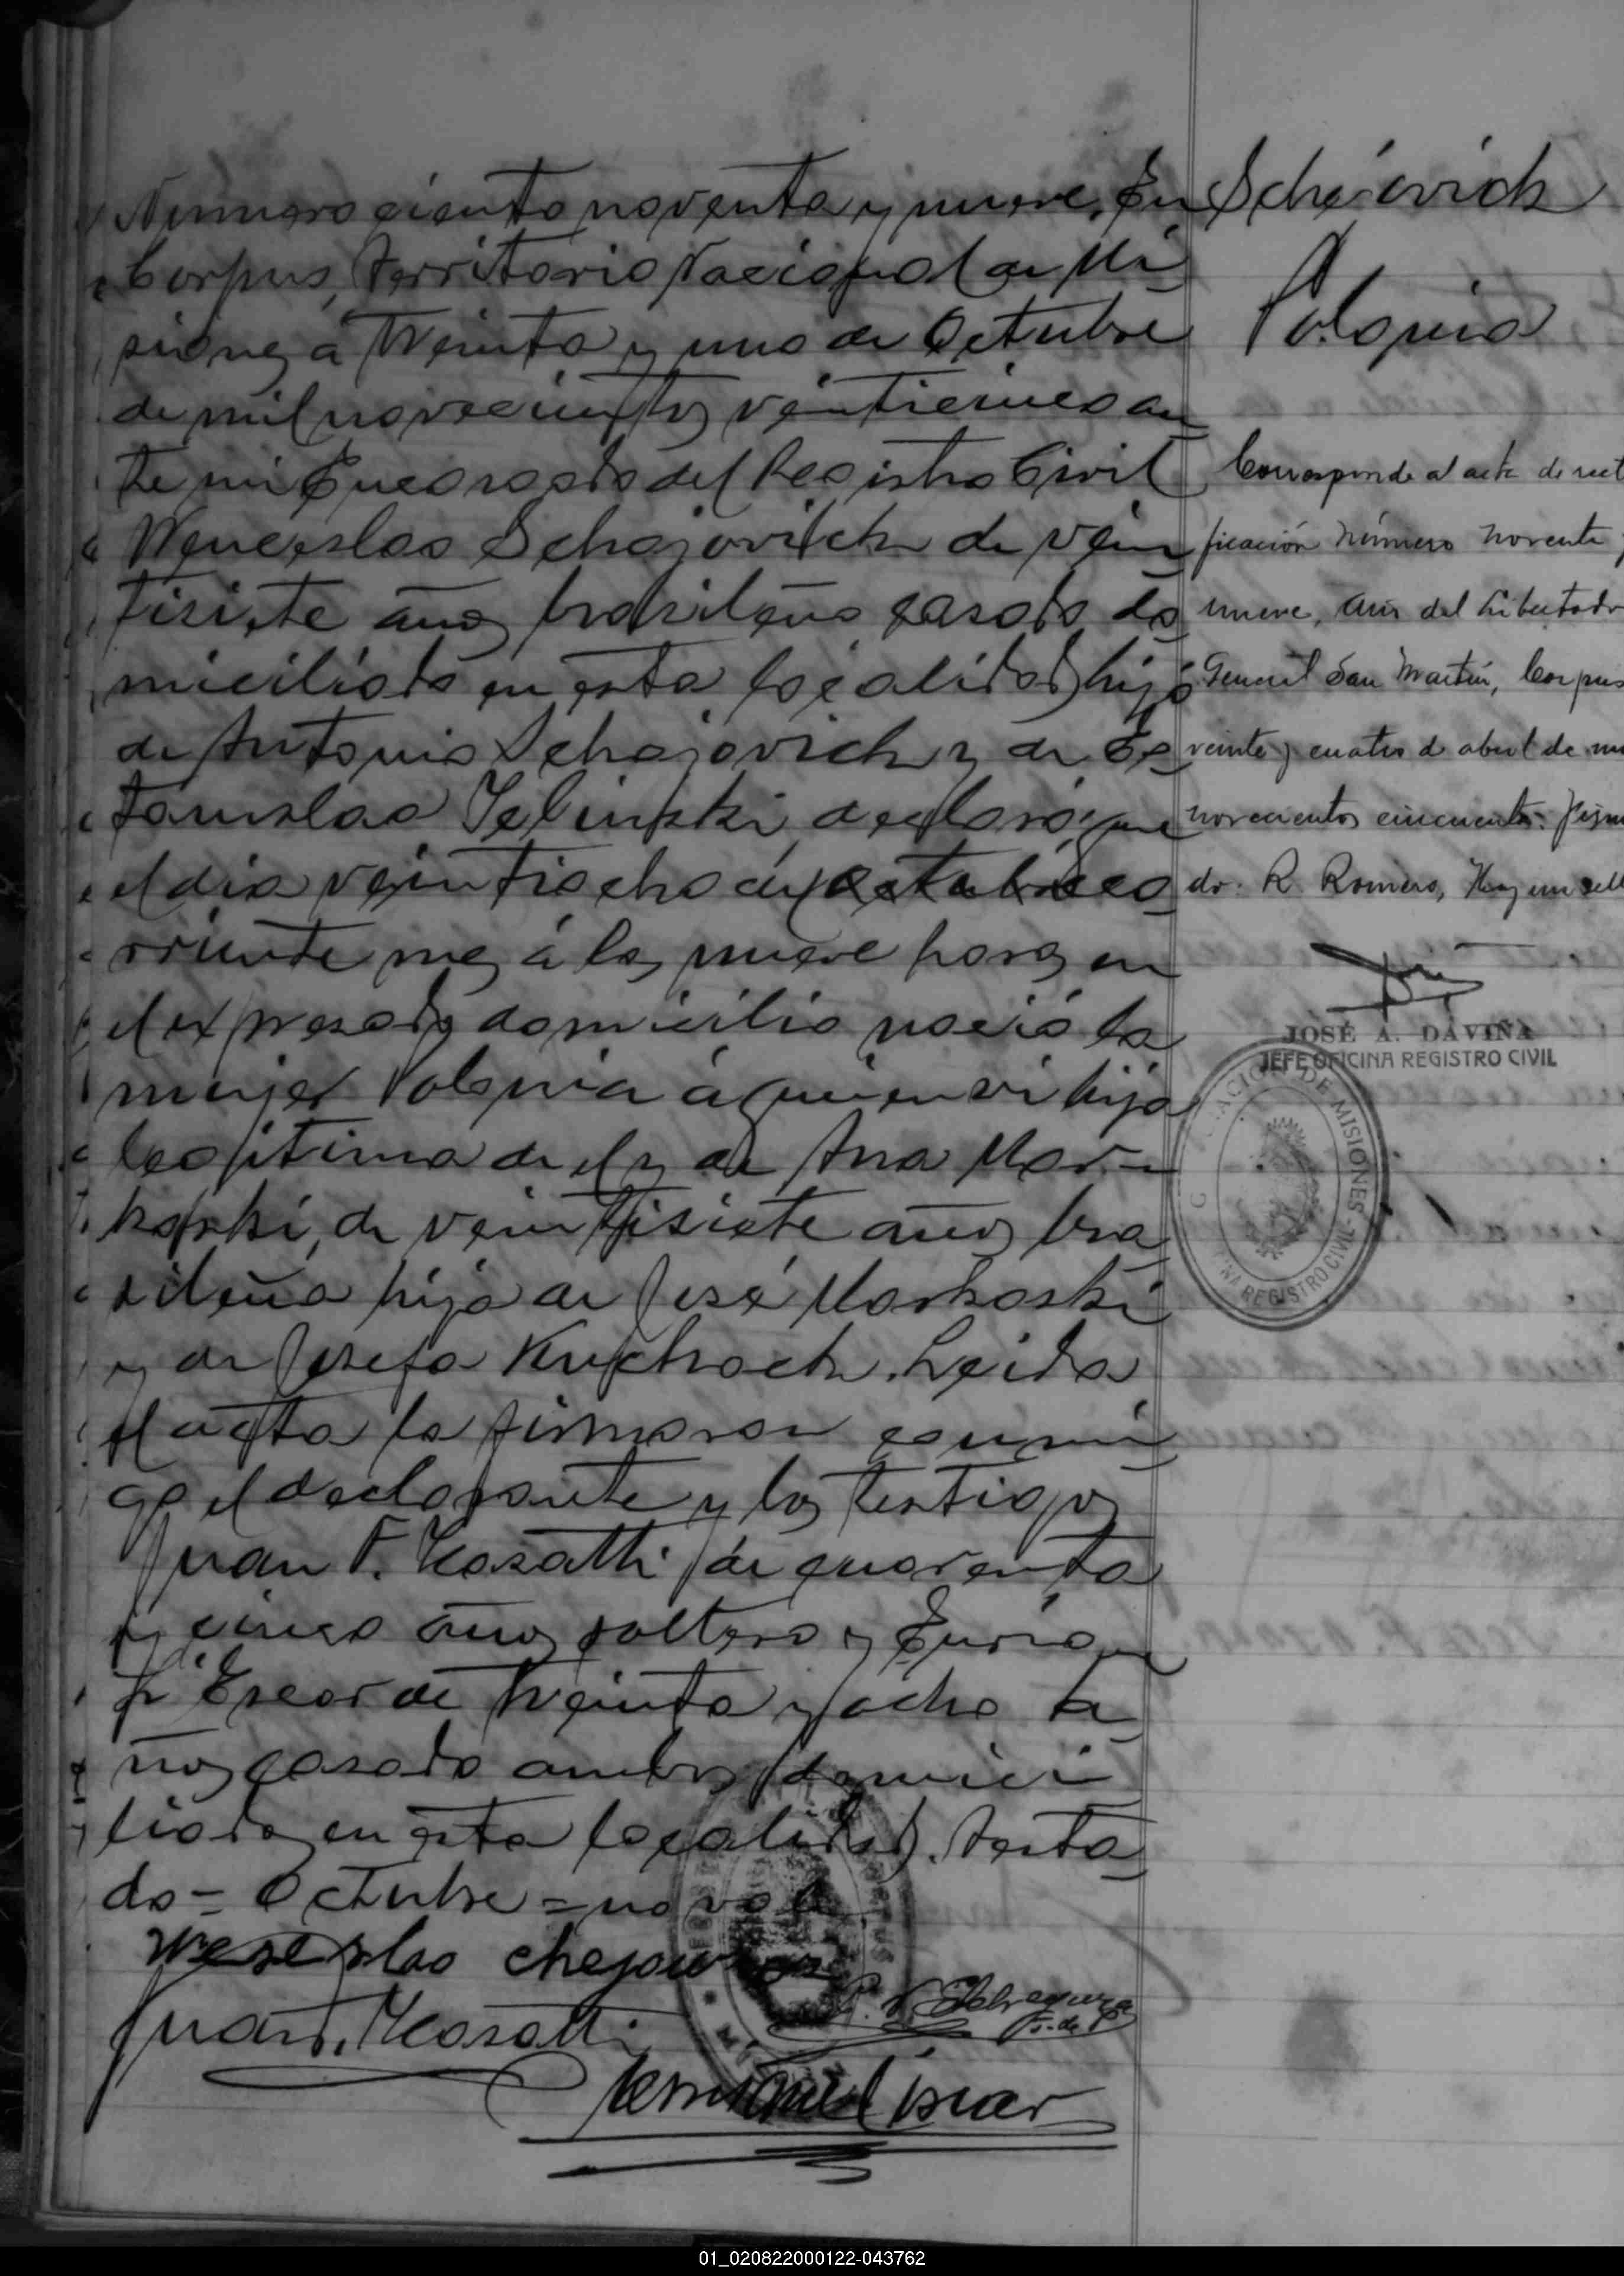 Número ciento noventa y nueve. En
Corpus, Territorio Nacional de Mi
siones a treinta y uno de Octubre
de mil novecientos veinticinco an
te mi Encargado del Registro Civil
Wenceslao Schajovitch de vein
tisiete años brasileño casado do
miciliado en esta localidad, hijo
de Antonio Schajovich y de Es
tanislaa Zelinski, declaró: que
el dia veintiocho del Octubre co
rriente mes á las nueve horas en
el expresado domicilio nació la
mujer Polonia á quien vi hija
legítima de el y de Ana Mar-
koski, de veintisiete años bra
sileña hija de José Markoski
y de Josefa Kuchach. Leida
el acta la firmaron conmi
go el declarante y los testigos
Juan F. Kosatti de cuarenta
y cinco años soltero y
Escar de treinta y ocho a
ños casado ambos domici
liados en esta localidad. Testa
do = Octubre = no vale
Weseslao
Juan F. Kosatti
Schéovich
Polonia
Corresponde al acta de recti
ficación número noventa y
nueve, Año del Libertador
General San Martín, Corpus
veinte y cuatro de abril de mil
novecientos cincuenta. Firma
do: R. Romero, Hay un sello
JOSÉ A. DAVIÑA
JEFE OFICINA REGISTRO CIVIL
DE MISIONES
REGISTRO CIVIL
01_020822000122-043762